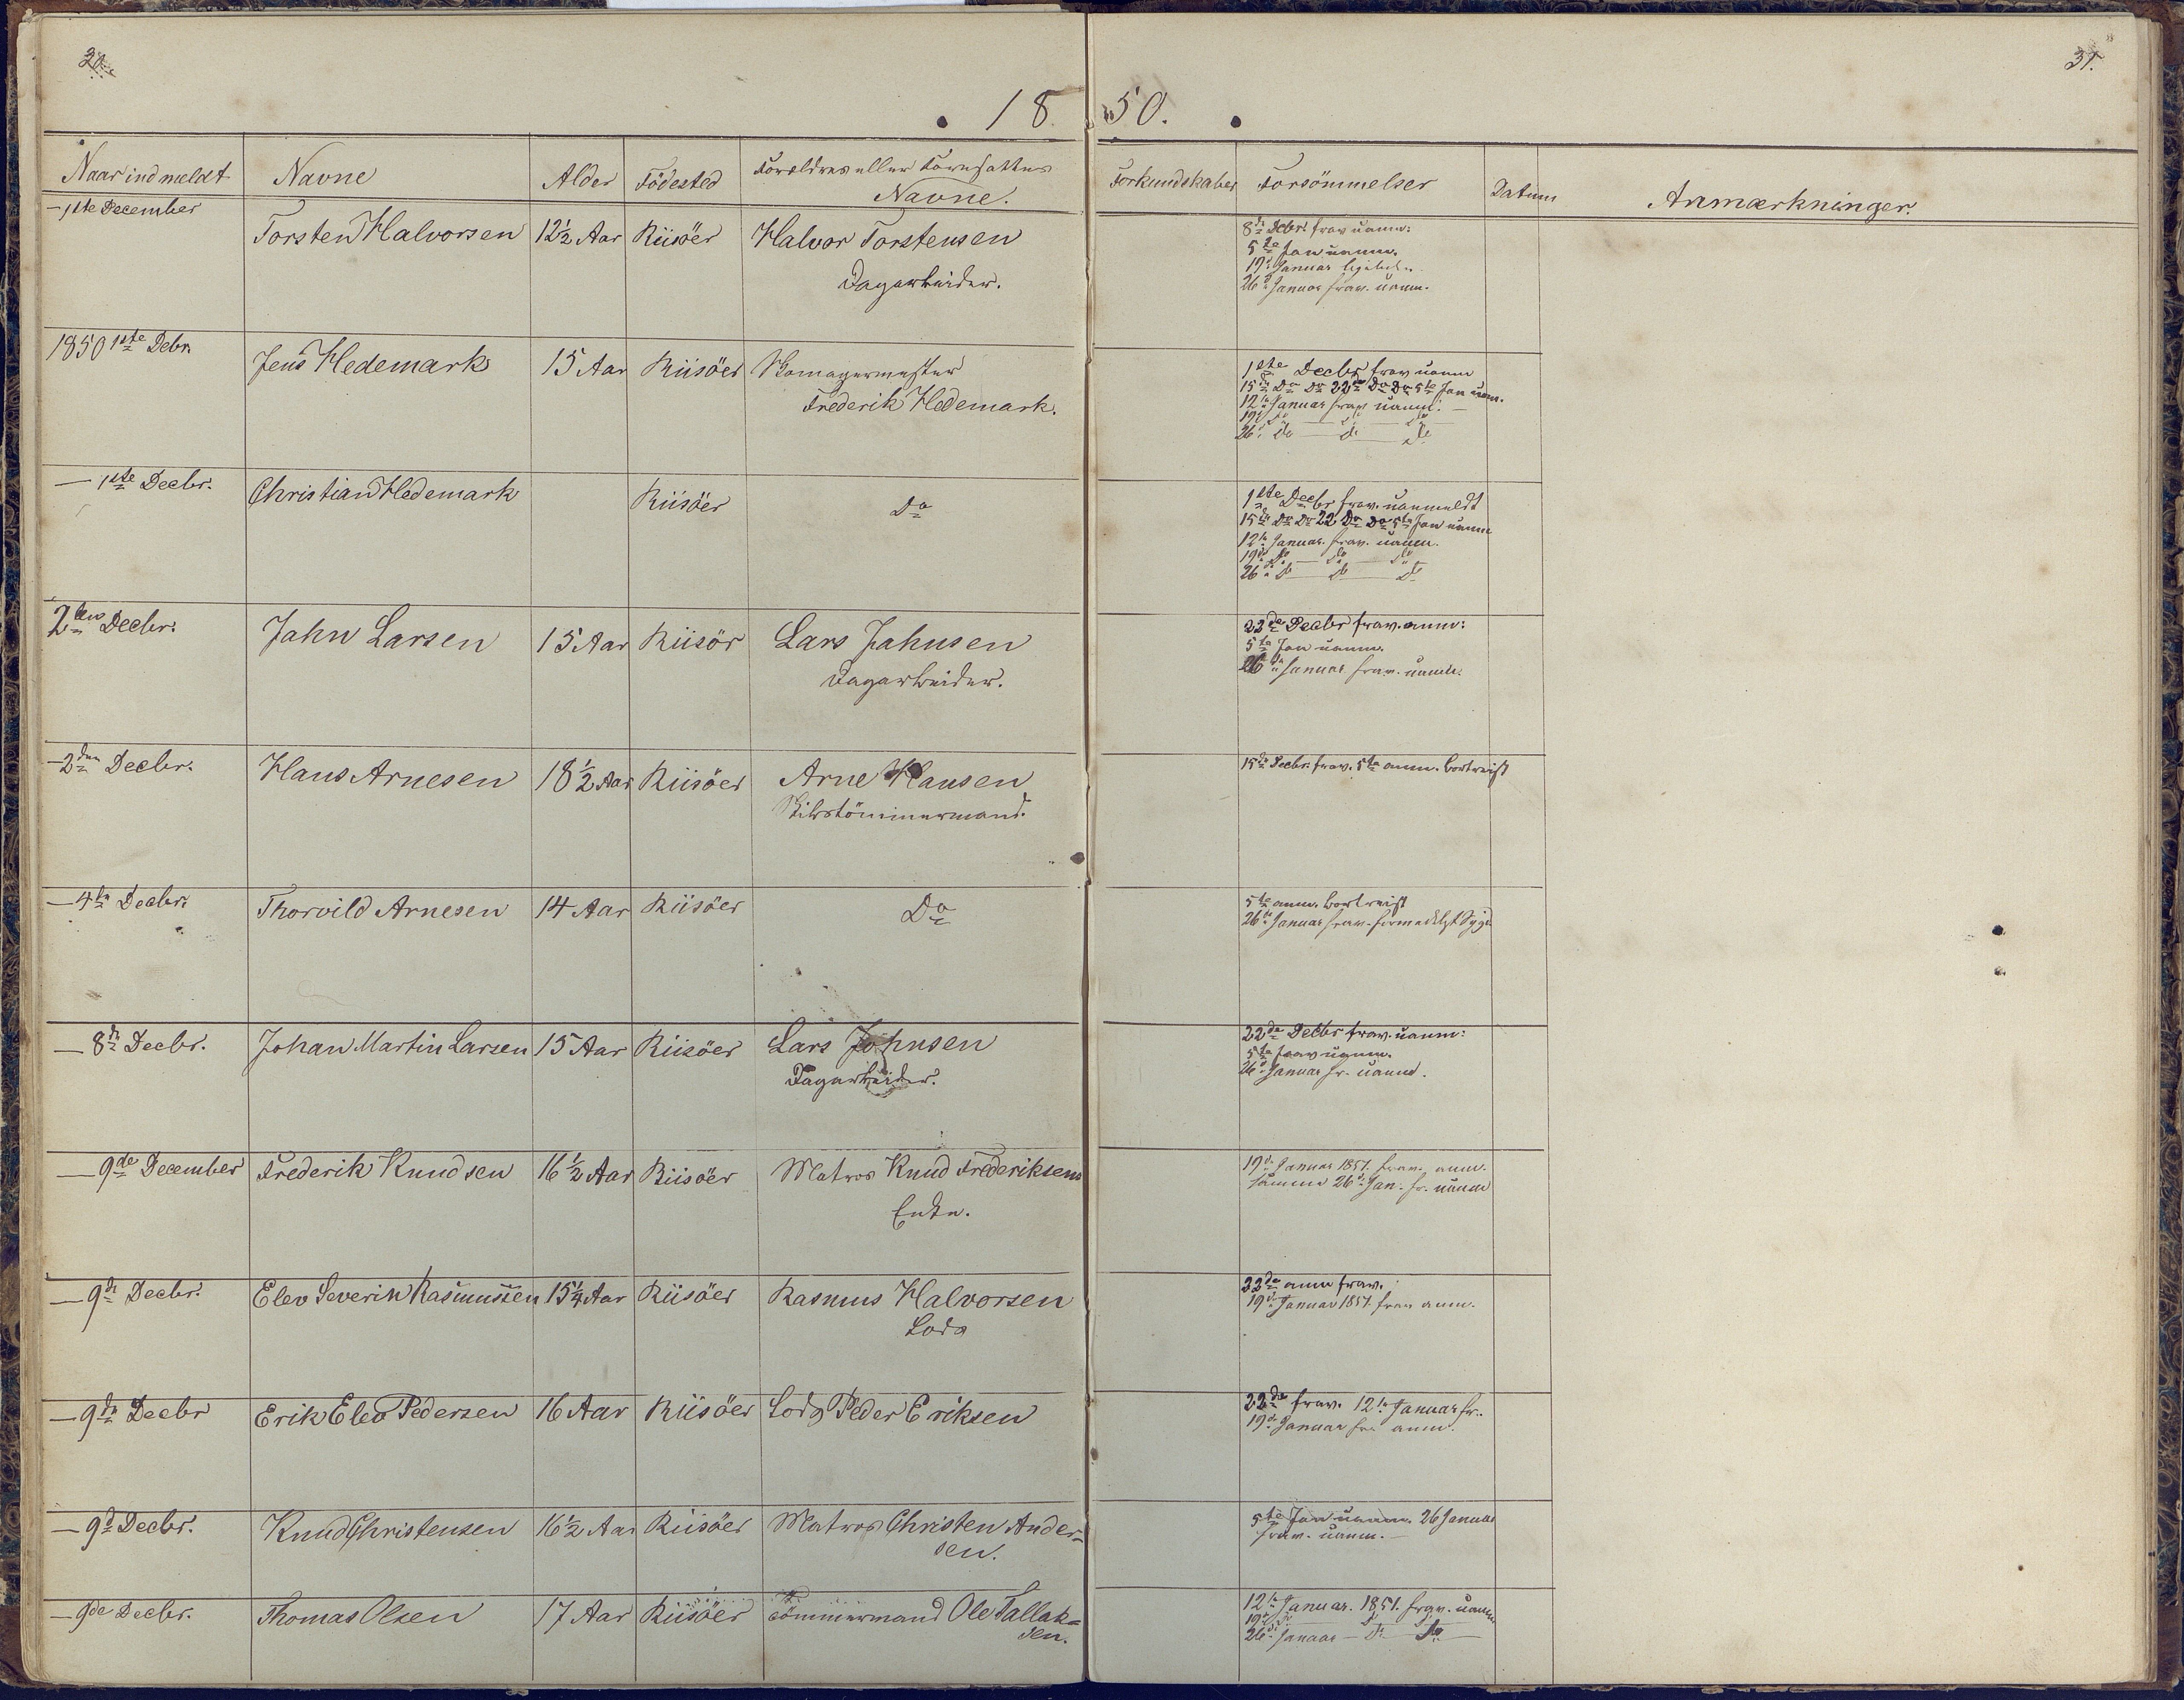 31.
18 50.
Naar indmeldt Navne Alder Födested Foreldres eller Foresattes Navne. Forkundskaber Forsömmelser Datum Anmærkninger.
— 1ste December Torsten Halvorsen 12½ Aar Riisöer Halvor Torstensen
Dagarbeider.
8de Decbr. frav uanm:
5te Jan uanm.
19de Januar
26de Januar frav. uanm.
1850 1ste Debr. Jens Hedemark 15 Aar Riisöer Skomagermester
Frederik Hedemark.
1ste Decbr frav uanm
15de Do Do 22de Do Do 5te Jan uanm.
12te Januar frav uanm: —
19de Do — Do — Do
26de Do — Do — Do
— 1ste Decbr. Christian Hedemark Riisöer Do
1ste Decbr frav. uanmeldt
15de Do Do 22 Do Do 5te Jan uanm
12te Januar. frav. uanm.
19de Do — Do — Do
26de Do — Do — Do
2den Decbr. Jahn Larsen 15 Aar Riisör Lars Jahnsen
Dagarbeider.
22de Decbr frav. anm:
5te Jan uanm.
26de Januar frav. uanm.
— 2den Decbr. Hans Arnesen 18½ Aar Riisöer Arne Hansen
Skibstömmermand.
15de Decbr. frav. 5te anm. bortreist
— 4de Decbr. Thorvild Arnesen 14 Aar Riisöer Do
5te anm. bortreist
26de Januar frav. formedelst Sygd
— 8de Decbr. Johan Martin Larsen 15 Aar Riisöer Lars Johnsen
Dagarbeider.
22de Decbr frav. uanm:
5te frav uanm.
26de Januar fr. uanm.
— 9de December Frederik Knudsen 16½ Aar Riisöer Matros Knud Frederiksens
Enke.
19de Januar 1851. frav. anm.
samme 26de Jan. fr. uanm
— 9de Decbr. Elev Severin Rasmussen 15¼ Aar Riisöer Rasmus Halvorsen
Lods
22de anm frav.
19de Januar 1851. frav anm.
— 9de Decbr Erik Elev Pedersen 16 Aar Riisöer Lods Peder Eriksen
22de frav. 12te Januar fr.
19de Januar fr. anm.
— 9de Decbr. Knud Christensen 16½ Aar Riisöer Matros Christen Ander-
sen.
5te Jan uanm. 26 Januar
frav. uanm. —
— 9de Decbr. Thomas Olsen 17 Aar Riisöer Tömmermand Ole Tallak=
sen.
12te Januar. 1851. frav. uanm.
19de Do — Do — Do
26de Januar — Do — Do